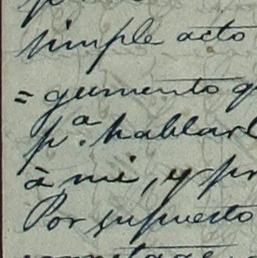 simple acto
= gumento q
pª. hablarl
à mi, y pr
Por supuesto